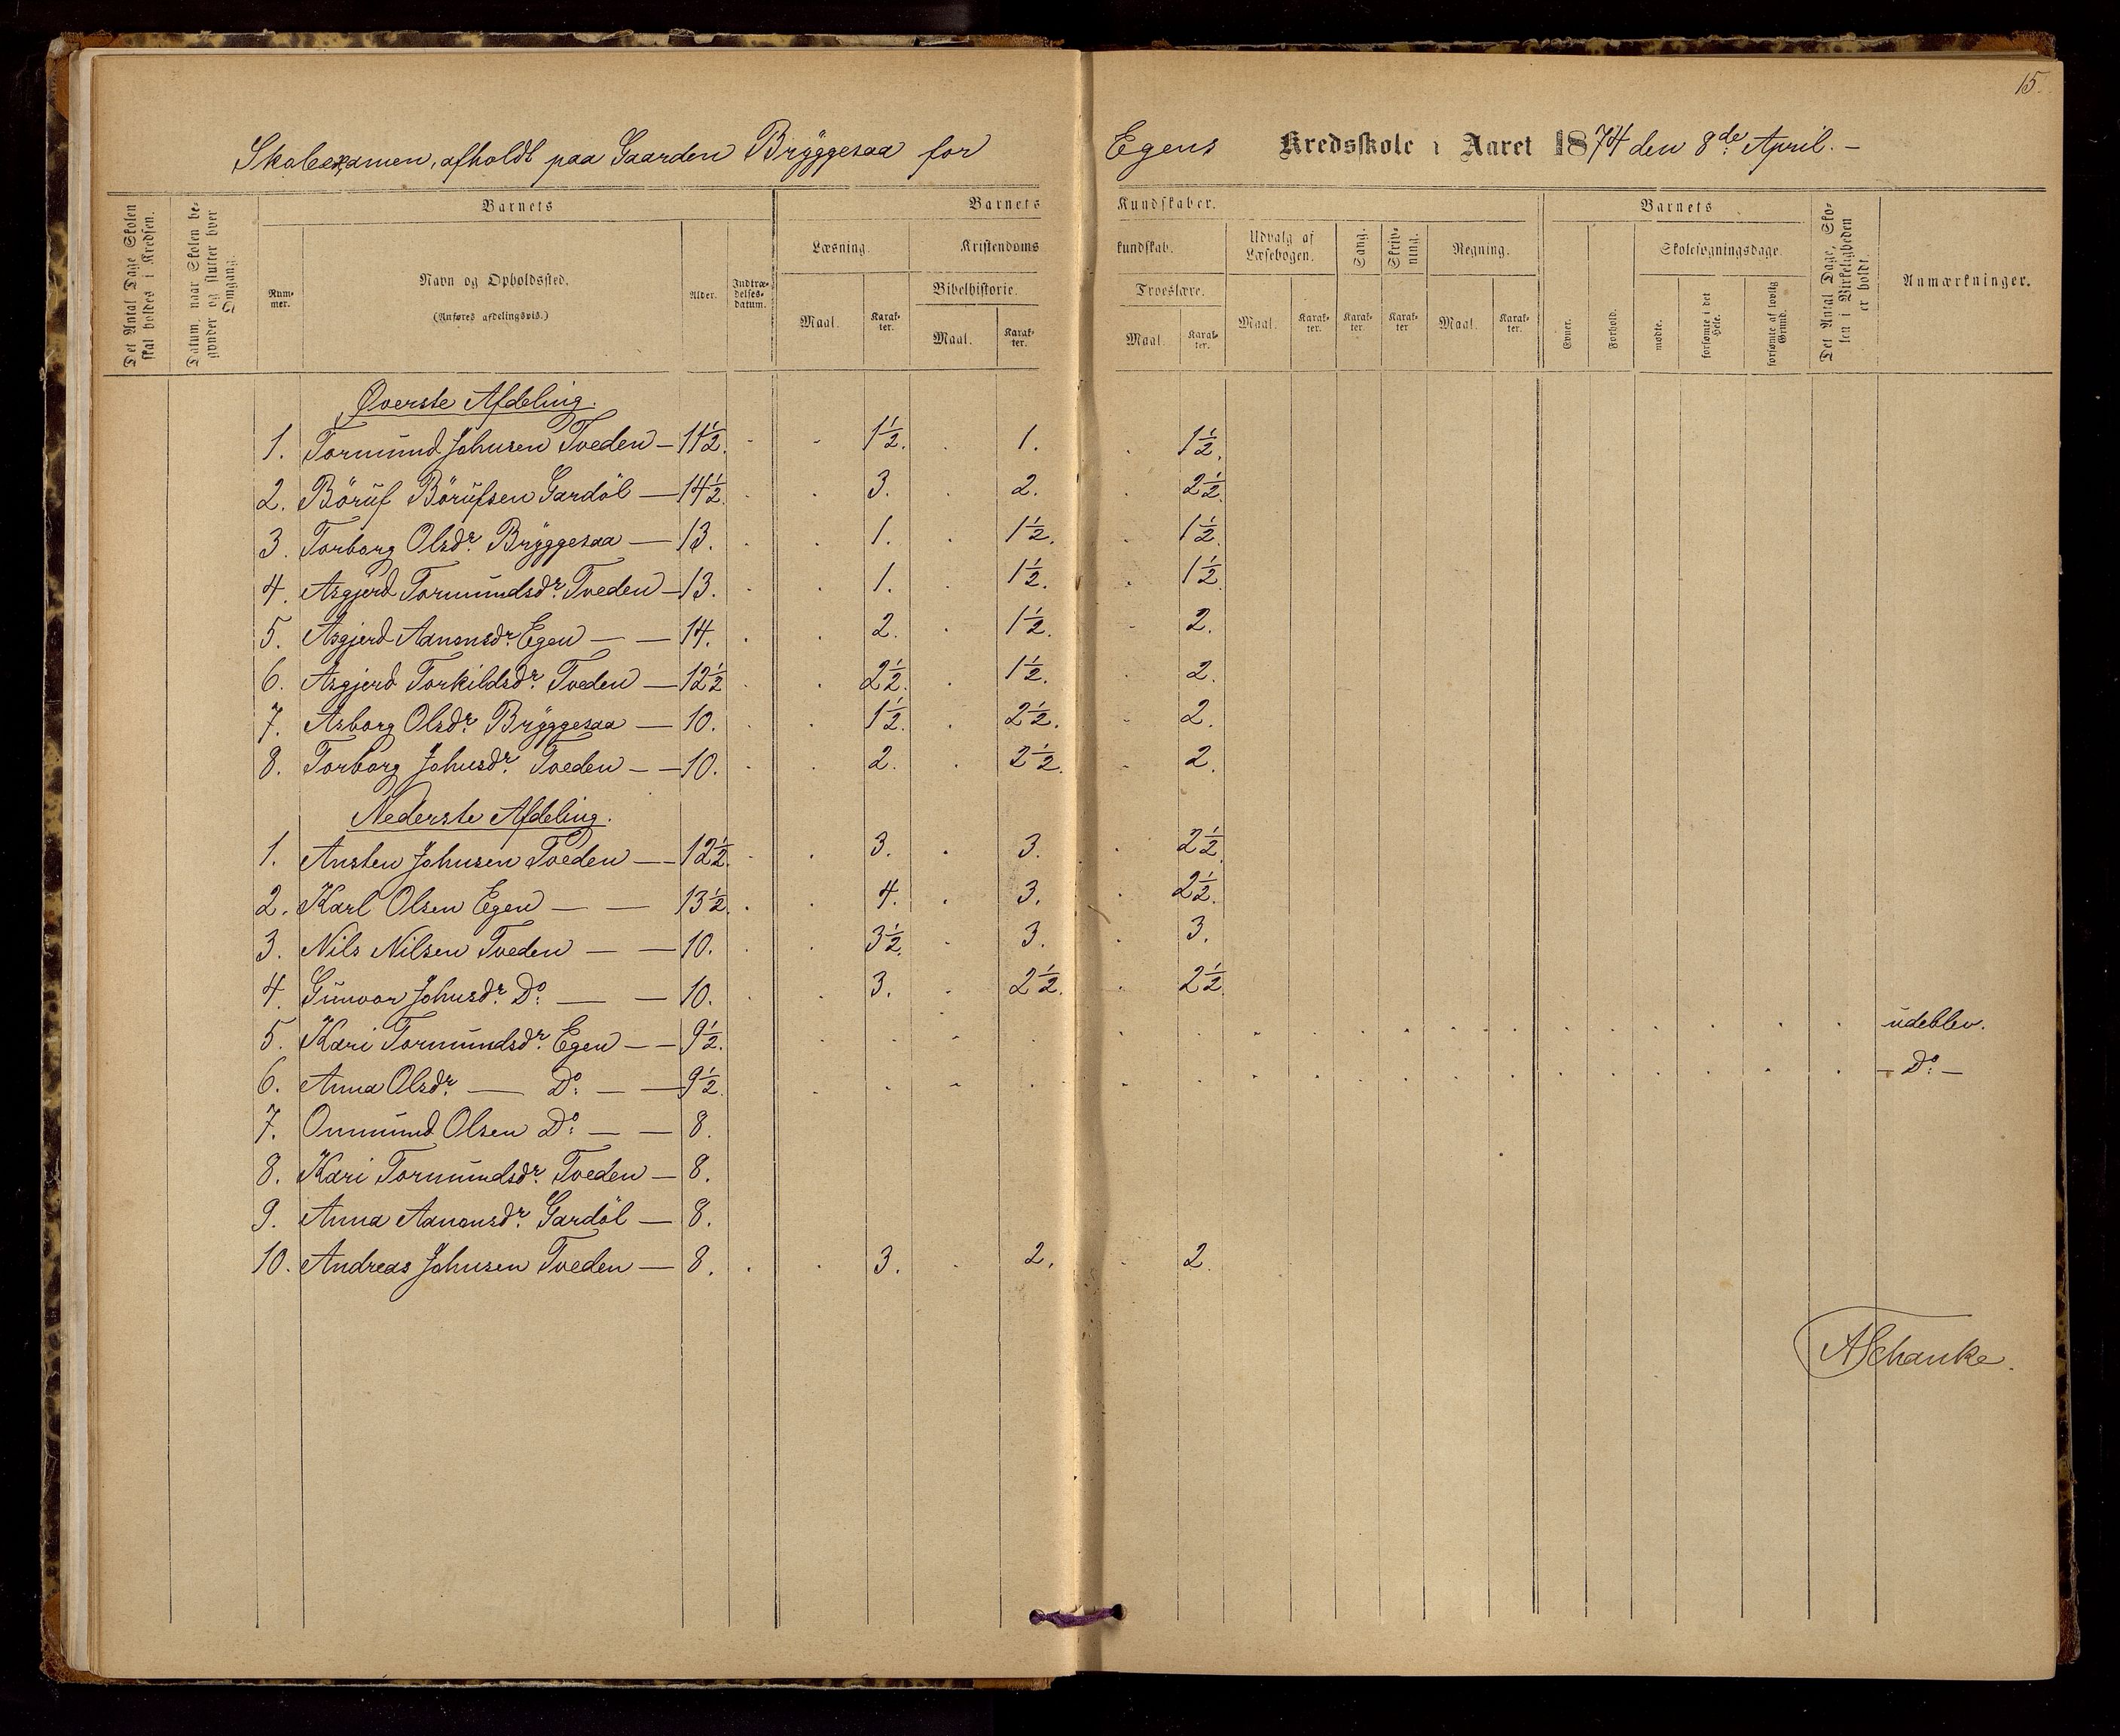 15.
Skoleexamen, afholdt paa Gaarden Bryggesaa for Egens Kredsskole i Aaret 1874 den 8de April. –
Det Antal Dage Skolen skal holdes i Kredsen.
Datum, naar Skolen begynder og slutter hver Omgang.
Barnets
Nummer.
Navn og Opholdssted.
(Anføres afdelingsvis.)
Alder.
Indtrædelsesdatum.
Barnets Kundskaber.
Læsning.
Maal.
Karakter.
Kristendomskundskab.
Bibelhistorie.
Maal.
Karakter.
Troeslære.
Maal.
Karakter.
Udvalg af Læsebogen.
Maal.
Karakter.
Sang.
Karakter.
Skrivning.
Karakter
Regning.
Maal.
Karakter.
Barnets
Evner.
Forhold.
Skolesøgningsdage.
mødte.
forsømte i det Hele.
forsømte af lovlig Grund.
Det Antal Dage, Skolen i Virkeligheden er holdt.
Anmærkninger.
Øverste Afdeling.
1. Tormund Johnsen Tveden – 11½. 1½. 1. 1½.
2. Börüf Börüfsen Gardöl — 14½. 3. 2. 2½.
3. Torborg Olsdr. Bryggesaa — 13. 1. 1½. 1½.
4. Asgjerd Tormundsdr. Tveden — 13. 1. 1½. 1½.
5. Asgjerd Aanonsdr. Egen — — 14. 2. 1½. 2.
6. Asgjerd Torkildsdr. Tveden — 12½ 2½. 1½. 2.
7. Asborg Olsdr. Bryggesaa — 10. 1½. 2½. 2.
8. Torborg Johnsdr. Tveden — — 10. 2. 2½. 2.
Nederste Afdeling.
1. Ansten Johnsen Tveden — — 12½. 3. 3. 2½.
2. Karl Olsen Egen — — 13½. 4. 3. 2½.
3. Nils Nilsen Tveden — — 10. 3½. 3. 3.
4. Gunvor Johnsdr. Do: — — 10. 3. 2½. 2½.
5. Kari Tormundsdr. Egen — — 9½. udeblev.
6. Anna Olsdr. — Do: — — 9½. – Do: –
7. Onmund Olsen Do: — — 8.
8. Kari Tormundsdr. Tveden — 8.
9. Anna Aanonsdr. Gardöl — 8.
10. Andreas Johnsen Tveden — 8. 3. 2. 2.
ASchanke.